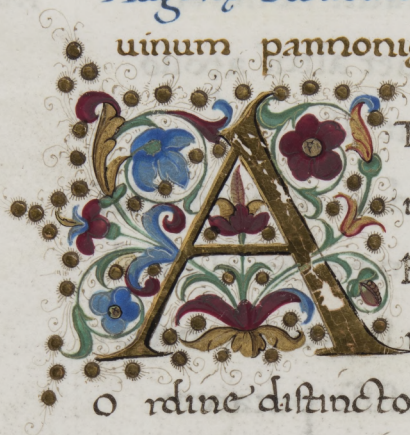 uinum pannoni
A
O rdine distincto